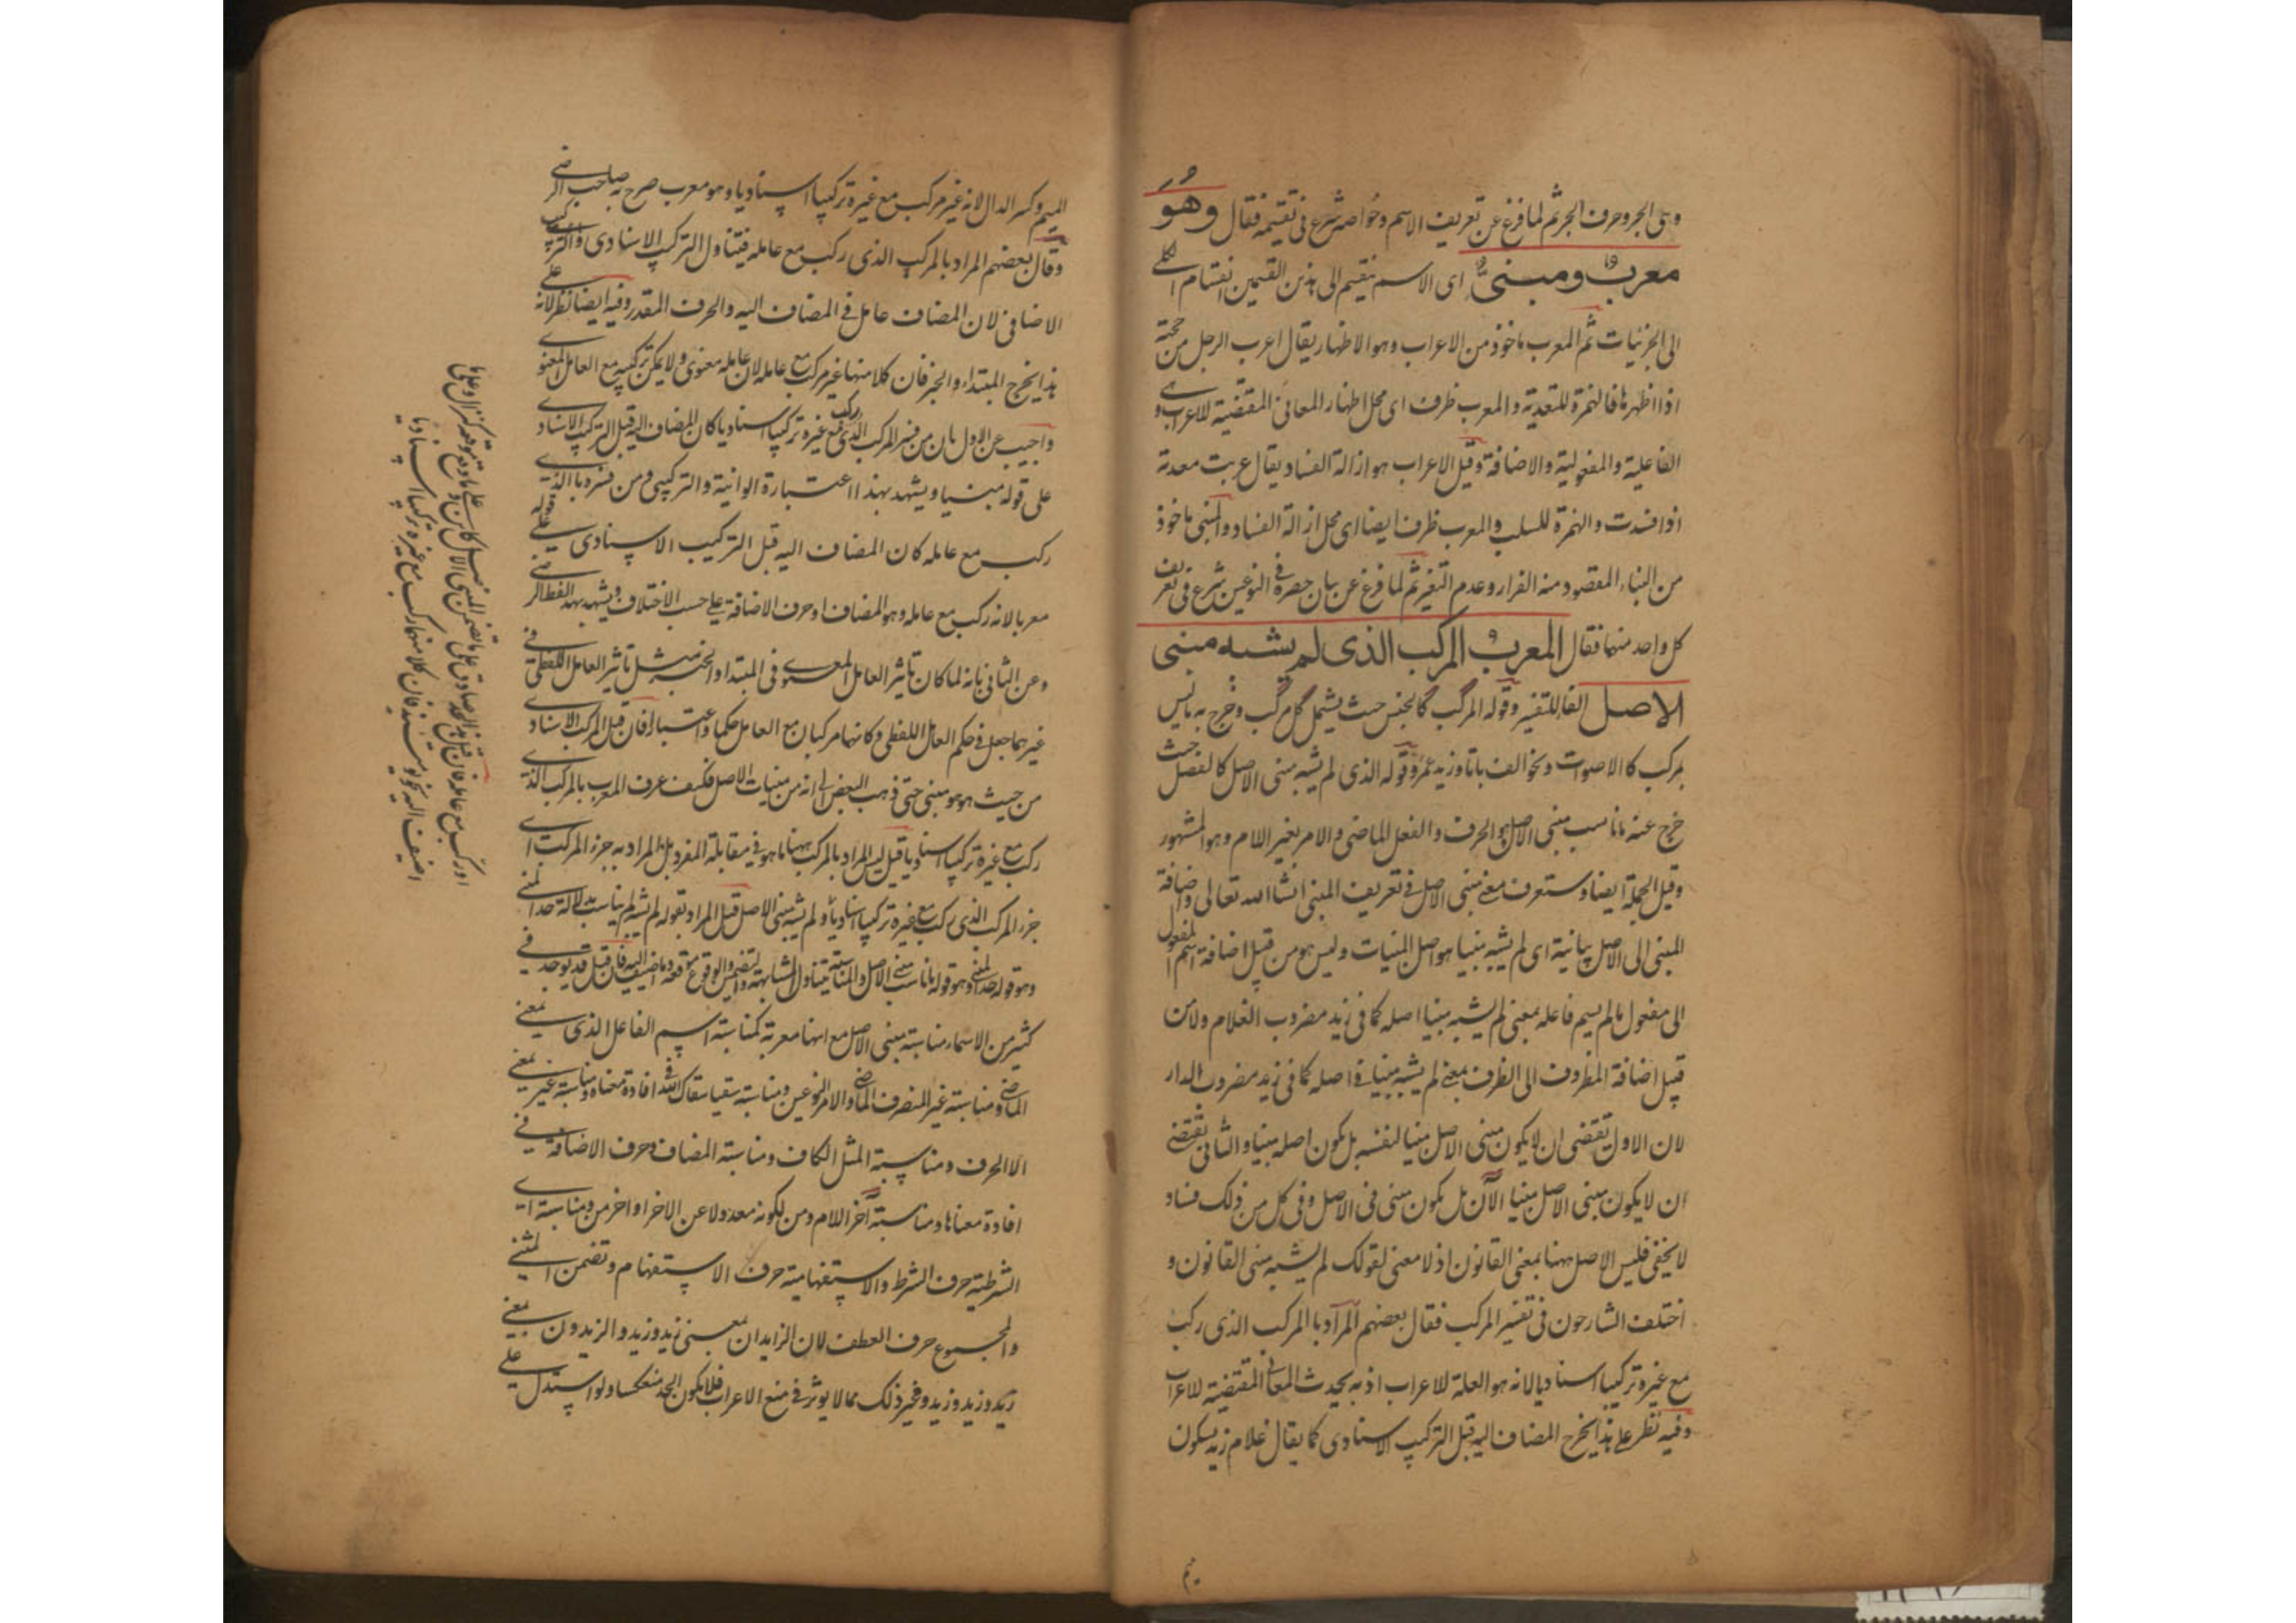 وبلى الجر وحرف الجر ثم لما فرغ عن تعريف الاسم وخواصه شرع فى تقسيمه فقال وهو
معرب ومبنى اى الاسم ينقسم الى هذين القسمين انقسام الكلى
الى الجزئيات ثم المعرب ماخوذ من الاعراب وهو الاظهار يقال اعرب الرجل من حجته
اذا اظهرها فالهمزة للتعدية والمعرب ظرف اى محل اظهار المعانى المقتضية للاعراب وهى
الفاعلية والمفعولية والاضافة وقيل الاعراب هو ازالة الفساد يقال عربت معدته
اذا فسدت والهمزة للسلب والمعرب ظرف ايضا اى محل ازالة الفساد والمبنى ماخوذ
من البناء المقصود منه القرار وعدم التغير ثم لما فرغ عن بيان حصره فى النوعين شرع فى تعريف
كل واحد منهما فقال المعرب المركب الذى لم يشبه مبنى
الاصل الفاء للتفسير وقوله المركب كالجنس حيث يشمل كل مركب وخرج به ما ليس
بمركب كالاصوات ونحو الف باتا وزيد عمرو وقوله الذى لم يشبه مبنى الاصل كالفصل حيث
خرج عنه ما ناسب مبنى الاصل وهو الحرف والفعل الماضى والامر بغير اللام وهو المشهور
وقيل الجملة ايضا وستعرف معنى مبنى الاصل فى تعريف المبنى انشا الله تعالى واضافة
المبنى الى الاصل بيانية اى لم يشبه مبنيا هو اصل المبنيات وليس هو من قبيل اضافة اسم المفعول
الى مفعول ما لم يسم فاعله بمعنى لم يشبه مبنيا اصله كما فى زيد مضروب الغلام ولا من
قبيل اضافة المظروف الى الظرف بمعنى لم يشبه مبنيا فى اصله كما فى زيد مضروب الدار
لان الاول يقتضى ان لا يكون مبنى الاصل مبنيا لنفسه بل يكون اصله مبنيا والثانى يقتضى
ان لا يكون مبنى الاصل مبنيا الآن بل يكون مبنى فى الاصل وفى كل من ذلك فساد
لا يخفى فليس الاصل ههنا بمعنى القانون اذ لا معنى لقولك لم يشبه مبنى القانون و
اختلف الشارحون فى تفسير المركب فقال بعضهم المراد بالمركب الذى ركب
مع غيره تركيبا اسناديا لانه هو العلة للاعراب اذ به يحدث المعانى المقتضية للاعراب
وفيه نظر على هذا يخرج المضاف اليه قبل التركيب الاسنادى كما يقال غلام زيد بسكون
الميم وكسر الدال لانه غير مركب مع غيره تركيبا اسناديا وهو معرب صرح به صاحب الرضى
وقال بعضهم المراد بالمركب الذى ركب مع عامله فيتناول التركيب الاسنادى والتركيب
الاضافى لان المضاف عامل فى المضاف اليه والحرف المقدر وفيه ايضا نظر لانه على
هذا يخرج المبتداء والخبر فان كلا منهما غير مركب مع عامله لان عامله معنوى ولا يمكن تركيبه مع العامل المعنوى
واجيب عن الاول بان من فسر المركب الذى ركب مع غيره تركيبا اسناديا كان المضاف اليه قبل التركيب الاسنادى
على قوله مبنيا ويشهد بهذا اعتبارة الوافية والتركيبى ومن فسره بالذى
ركب مع عامله كان المضاف اليه قبل التركيب الاسنادى على قوله
معربا لانه ركب مع عامله وهو المضاف او حرف الاضافة على حسب الاختلاف ويشهد بهذا لفظ الرضى
وعن الثانى بانه لما كان تاثير العامل المعنوى فى المبتدا والخبر مثل تاثير العامل اللفظى فى
غيرهما جعل فى حكم العامل اللفظى وكانهما مركبان مع العامل حكما واعتبارا فان قيل المركب الاسنادى
من حيث هو هو مبنى حتى ذهب البعض الى انه من مبنيات الاصل فكيف عرف المعرب بالمركب الذى
ركب مع غيره تركيبا اسناديا قيل ليس المراد بالمركب ههنا ما هو فى مقابلة المفرد بل المراد به جزء المركب اى
جزء المركب الذى ركب مع غيره تركيبا اسناديا ولم يشبه مبنى الاصل قيل المراد بقوله لم يشبه لم يناسب بدلالة حد المبنى
وهو قوله ما ناسب مبنى الاصل والمناسبة يتناول المشابهة والتضمن والوقوع موقعه وما اضيف اليه فان قيل قد يوجد فى
كثير من الاسماء مناسبة مبنى الاصل مع انها معربة كمناسبة اسم الفاعل الذى بمعنى
الماضى ومناسبة غير المنصرف الماضى والامر النوعين ومناسبة سقيا سقاك الله فى افادة معناه ومناسبة غير بمعنى
الا الحرف ومناسبة المثل الكاف ومناسبة المضاف وحرف الاضافة فى
افادة معناها ومناسبة آخر اللام ومن لكونه معدولا عن الاخر او اخر من ومناسبة اى
الشرطية حرف الشرط والاستفهامية حرف الاستفهام وتضمن المثنى
والمجموع حرف العطف لان الزيدان بمعنى زيد وزيد والزيدون بمعنى
زيد وزيد وزيد وغير ذلك مما لا يوثر فى منع الاعراب فلا يكون الحد منعكسا ولو استدل على